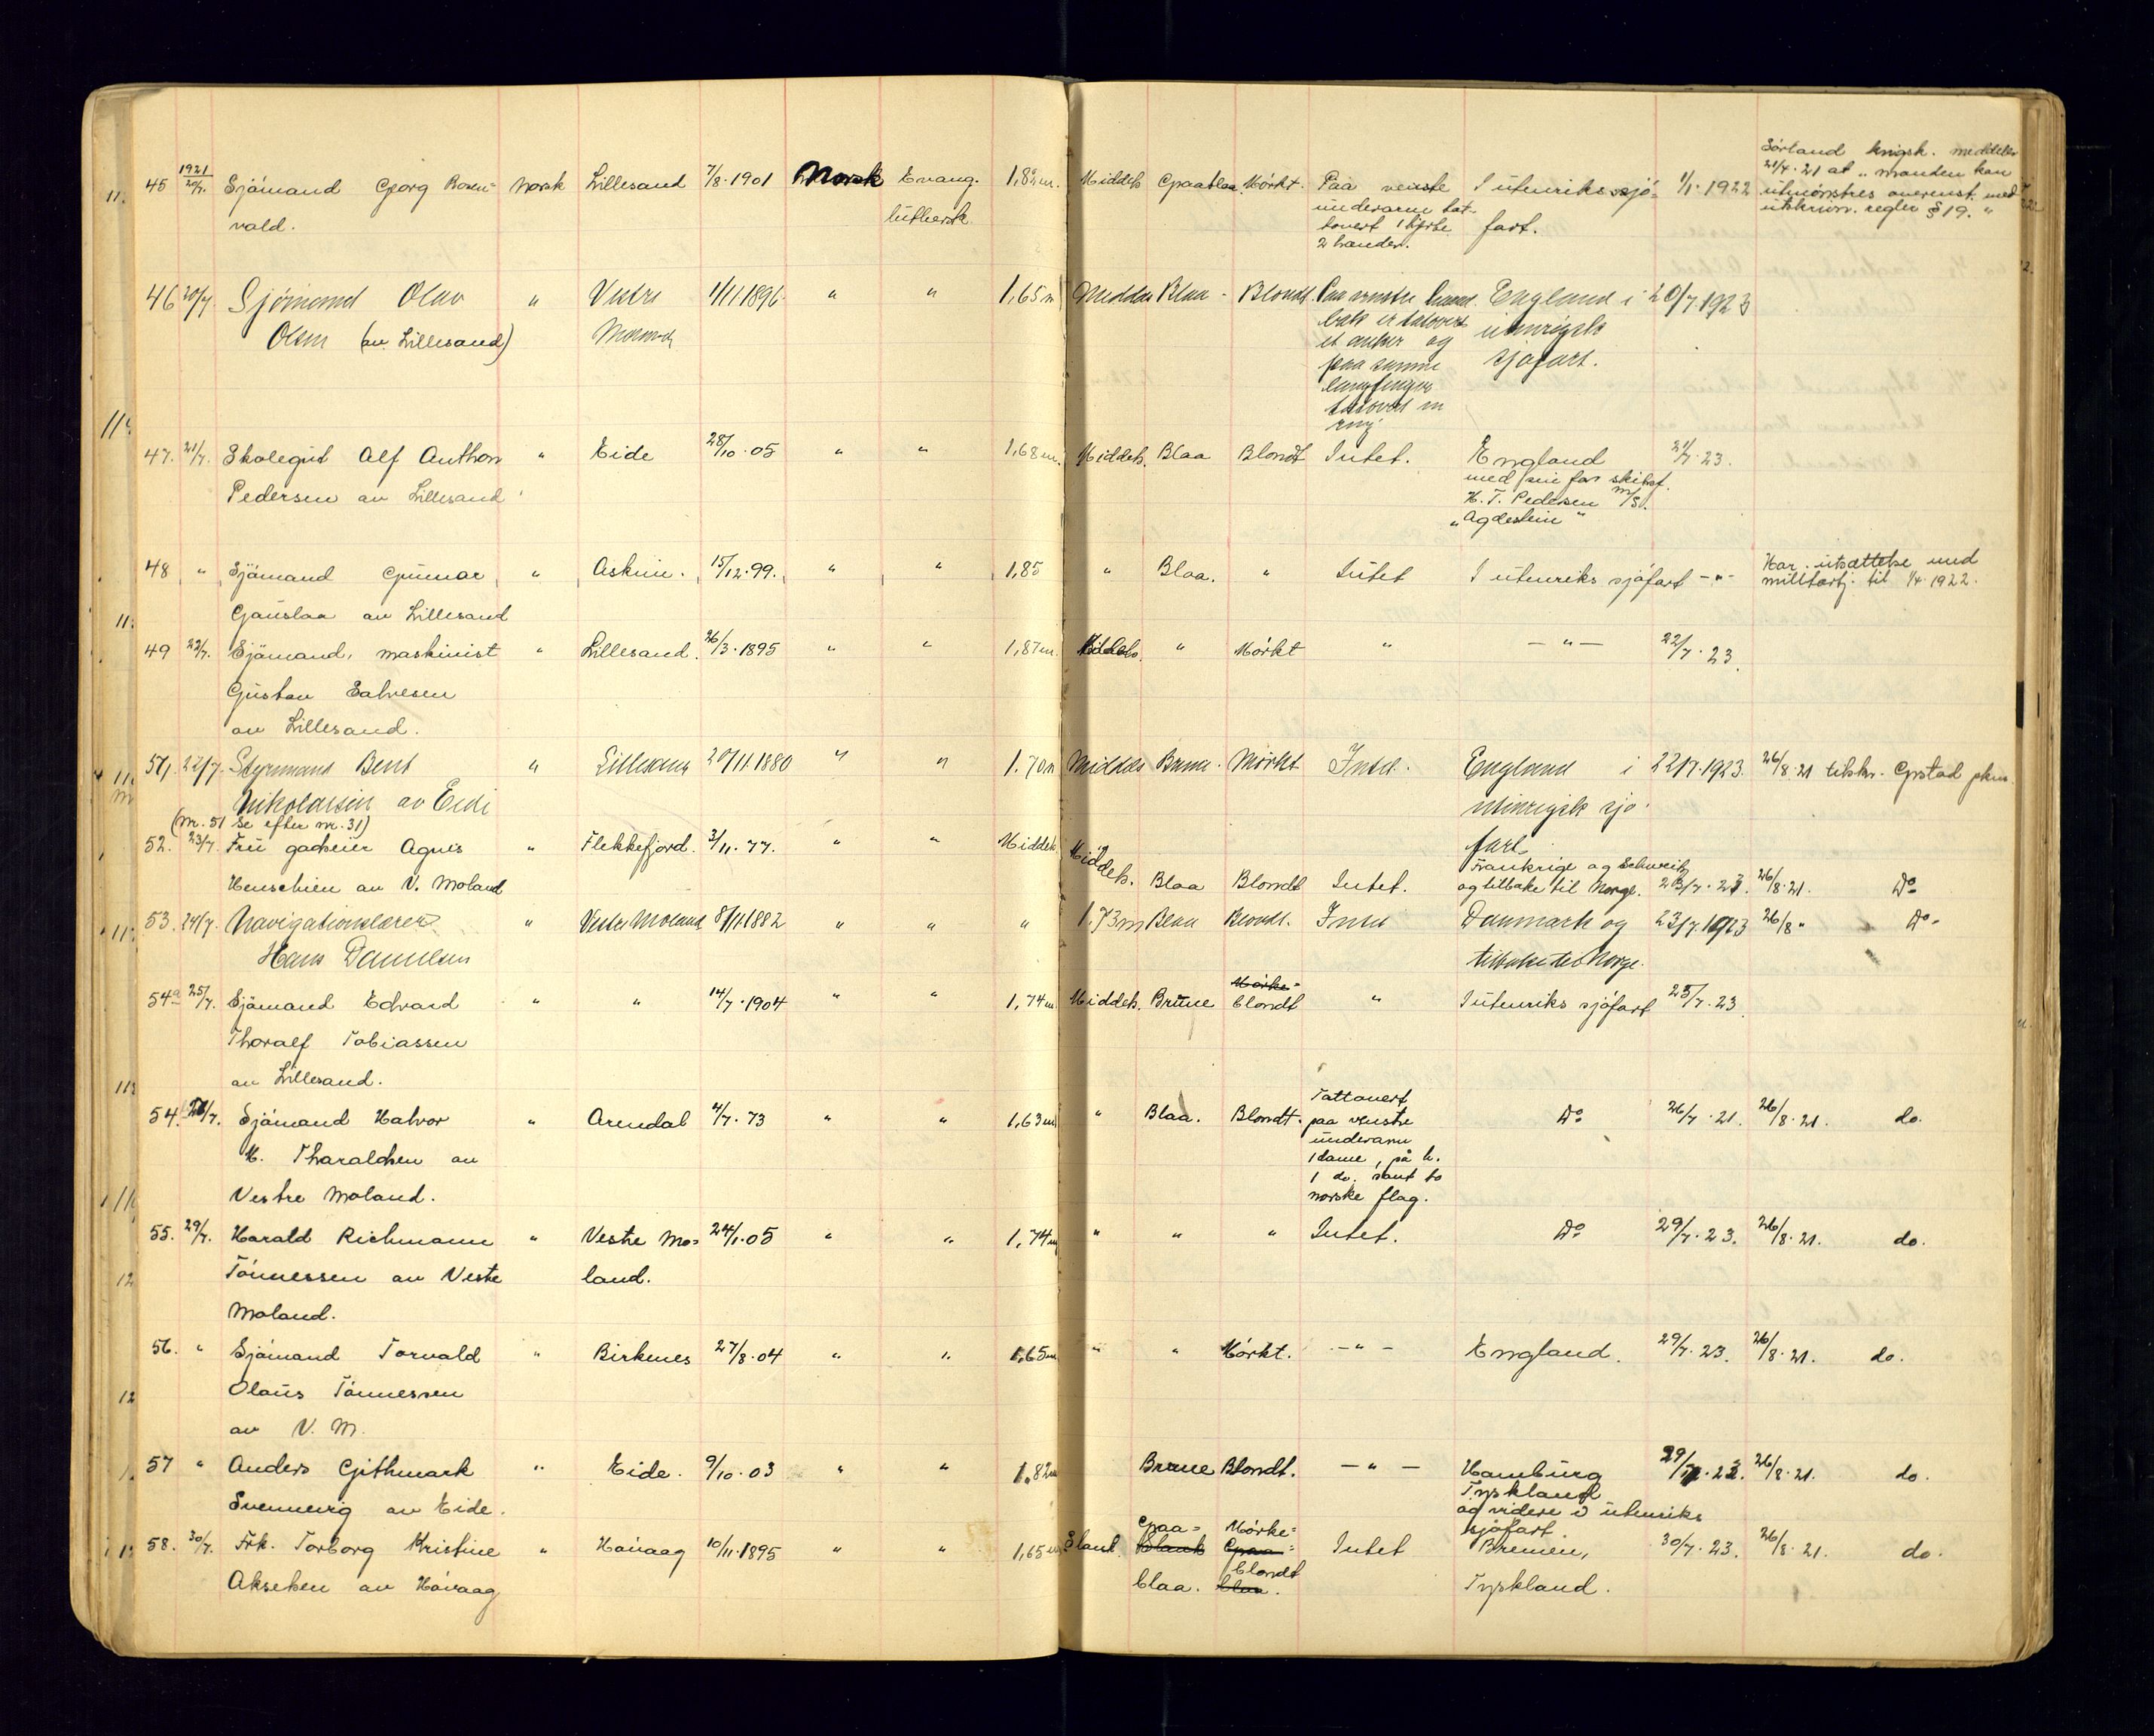 45 1921 20/7. Sjömand Georg Rosen= norsk Lillesand 7/8.1901 Norsk Evang. 1,82m. Middels Graablaa Mörkt. Paa venste I utenriks sjö- 1/1.1922 Sörland krigsk. meddeler
vald. luthersk underarm tat- fart. 21/4.21 at "manden kan
tovert 1 hjerte utmönstres overenst. med
2 hænder. utskrivn. regler § 19."
46 20/7. Sjömand Olav " Vestre 1/11.1896 " " 1,65m Middels Blaa - Blondt. Paa venstre haand England i 20/7 1923
Olsen (av Lillesand) Moland bak er tatovert utenrigsk
et anker og sjöfart.
paa samme
langfinger
tatovert en
ring
47. 21/7. Skolegut Alf Anthon " Eide 28/10.05 " " 1,68m. Middels. Blaa Blondt Intet. England 21/7.23.
Pedersen av Lillesand med sin far skibsf.
H. T. Pedersen M/S.
"Agdestein"
48 " Sjömand Gunnar " Askim. 15/12.99. " " 1,85 " Blaa. " Intet I utenriks sjöfart -"- Har utsættelse med
Gauslaa av Lillesand militærtj. til 1/4.1922.
49 22/7. Sjömand, maskinist " Lillesand. 26/3.1895 " " 1,87m. Middels. " Mörkt " -"- 22/7.23.
Gustav Salvesen
av Lillesand.
51. 22/7 Styrmand Bent " Lillesand 20/11.1880 " " 1.70m Middels Brune. Mörkt Intet. England i 22/7.1923. 26/8.21 tilskr. Grstad
Nikolaisen av Eide utenrigsk sjö
(nr. 51 se efter nr. 31) fart.
52. 23/7. Frü Agnes " Flekkefjord. 3/11.77. " " Middels Middels. Blaa Blondt Intet. Frankrige og Schweitz
Henschien av V. Moland og tilbake til Norge. 23/7.23. 26/8.21. Do
53. 24/7. Navigationslærer " Vestre Moland 8/11.1882 " " " 1.73m Blaa Blondt. Intet Danmark og 23/7.1923 26/8 " Do-
Hans Danielsen tilbake til Norge.
54a 25/7. Sjömand Edvard " " 14/7.1904 " " 1,74m Middels. Brune Mörke= blondt " I utenriks sjöfart 25/7.23.
Thoralf Tobiassen
av Lillesand.
54. 26/7. Sjömand Halvor " Arendal 4/7.73 " " 1,63m " Blaa. Blondt. Tattovert Do 26/7.21. 26/8.21. do.
M. Tharaldsen av paa venstre
Vestre Moland. underarm
1 dame, på h.
1 do. samt to
norske flag.
55. 29/7. Harald Richmann " Vestre Mo= 24/1.05 " " 1,74m " " " Intet. Do 29/7.23. 26/8.21. do.
Tönnessen av Vestre land.
Moland.
56. " Sjömand Torvald " Birkenes 27/8.04 " " 1,65m " " Mörkt. -"- England. 29/7.23. 26/8.21. do.
Olaüs Tönnessen
av V. M.
57 " Anders Githmark " Eide. 9/10.03 " " 1,82m Brune Blondt. -"- Hamburg 29/7.23. 26/8.21. do.
Svennevig av Eide. Tyskland
og videre i utenriks
sjöfart.
58. 30/7. Frk. Torborg Kristine " Hövaag 10/11.1895 " " 1,65m Slank. Graa= Mörke= Intet Bremen, 30/7.23. 26/8.21. do.
Akselsen av Hövaag blaa. blondt Tyskland.